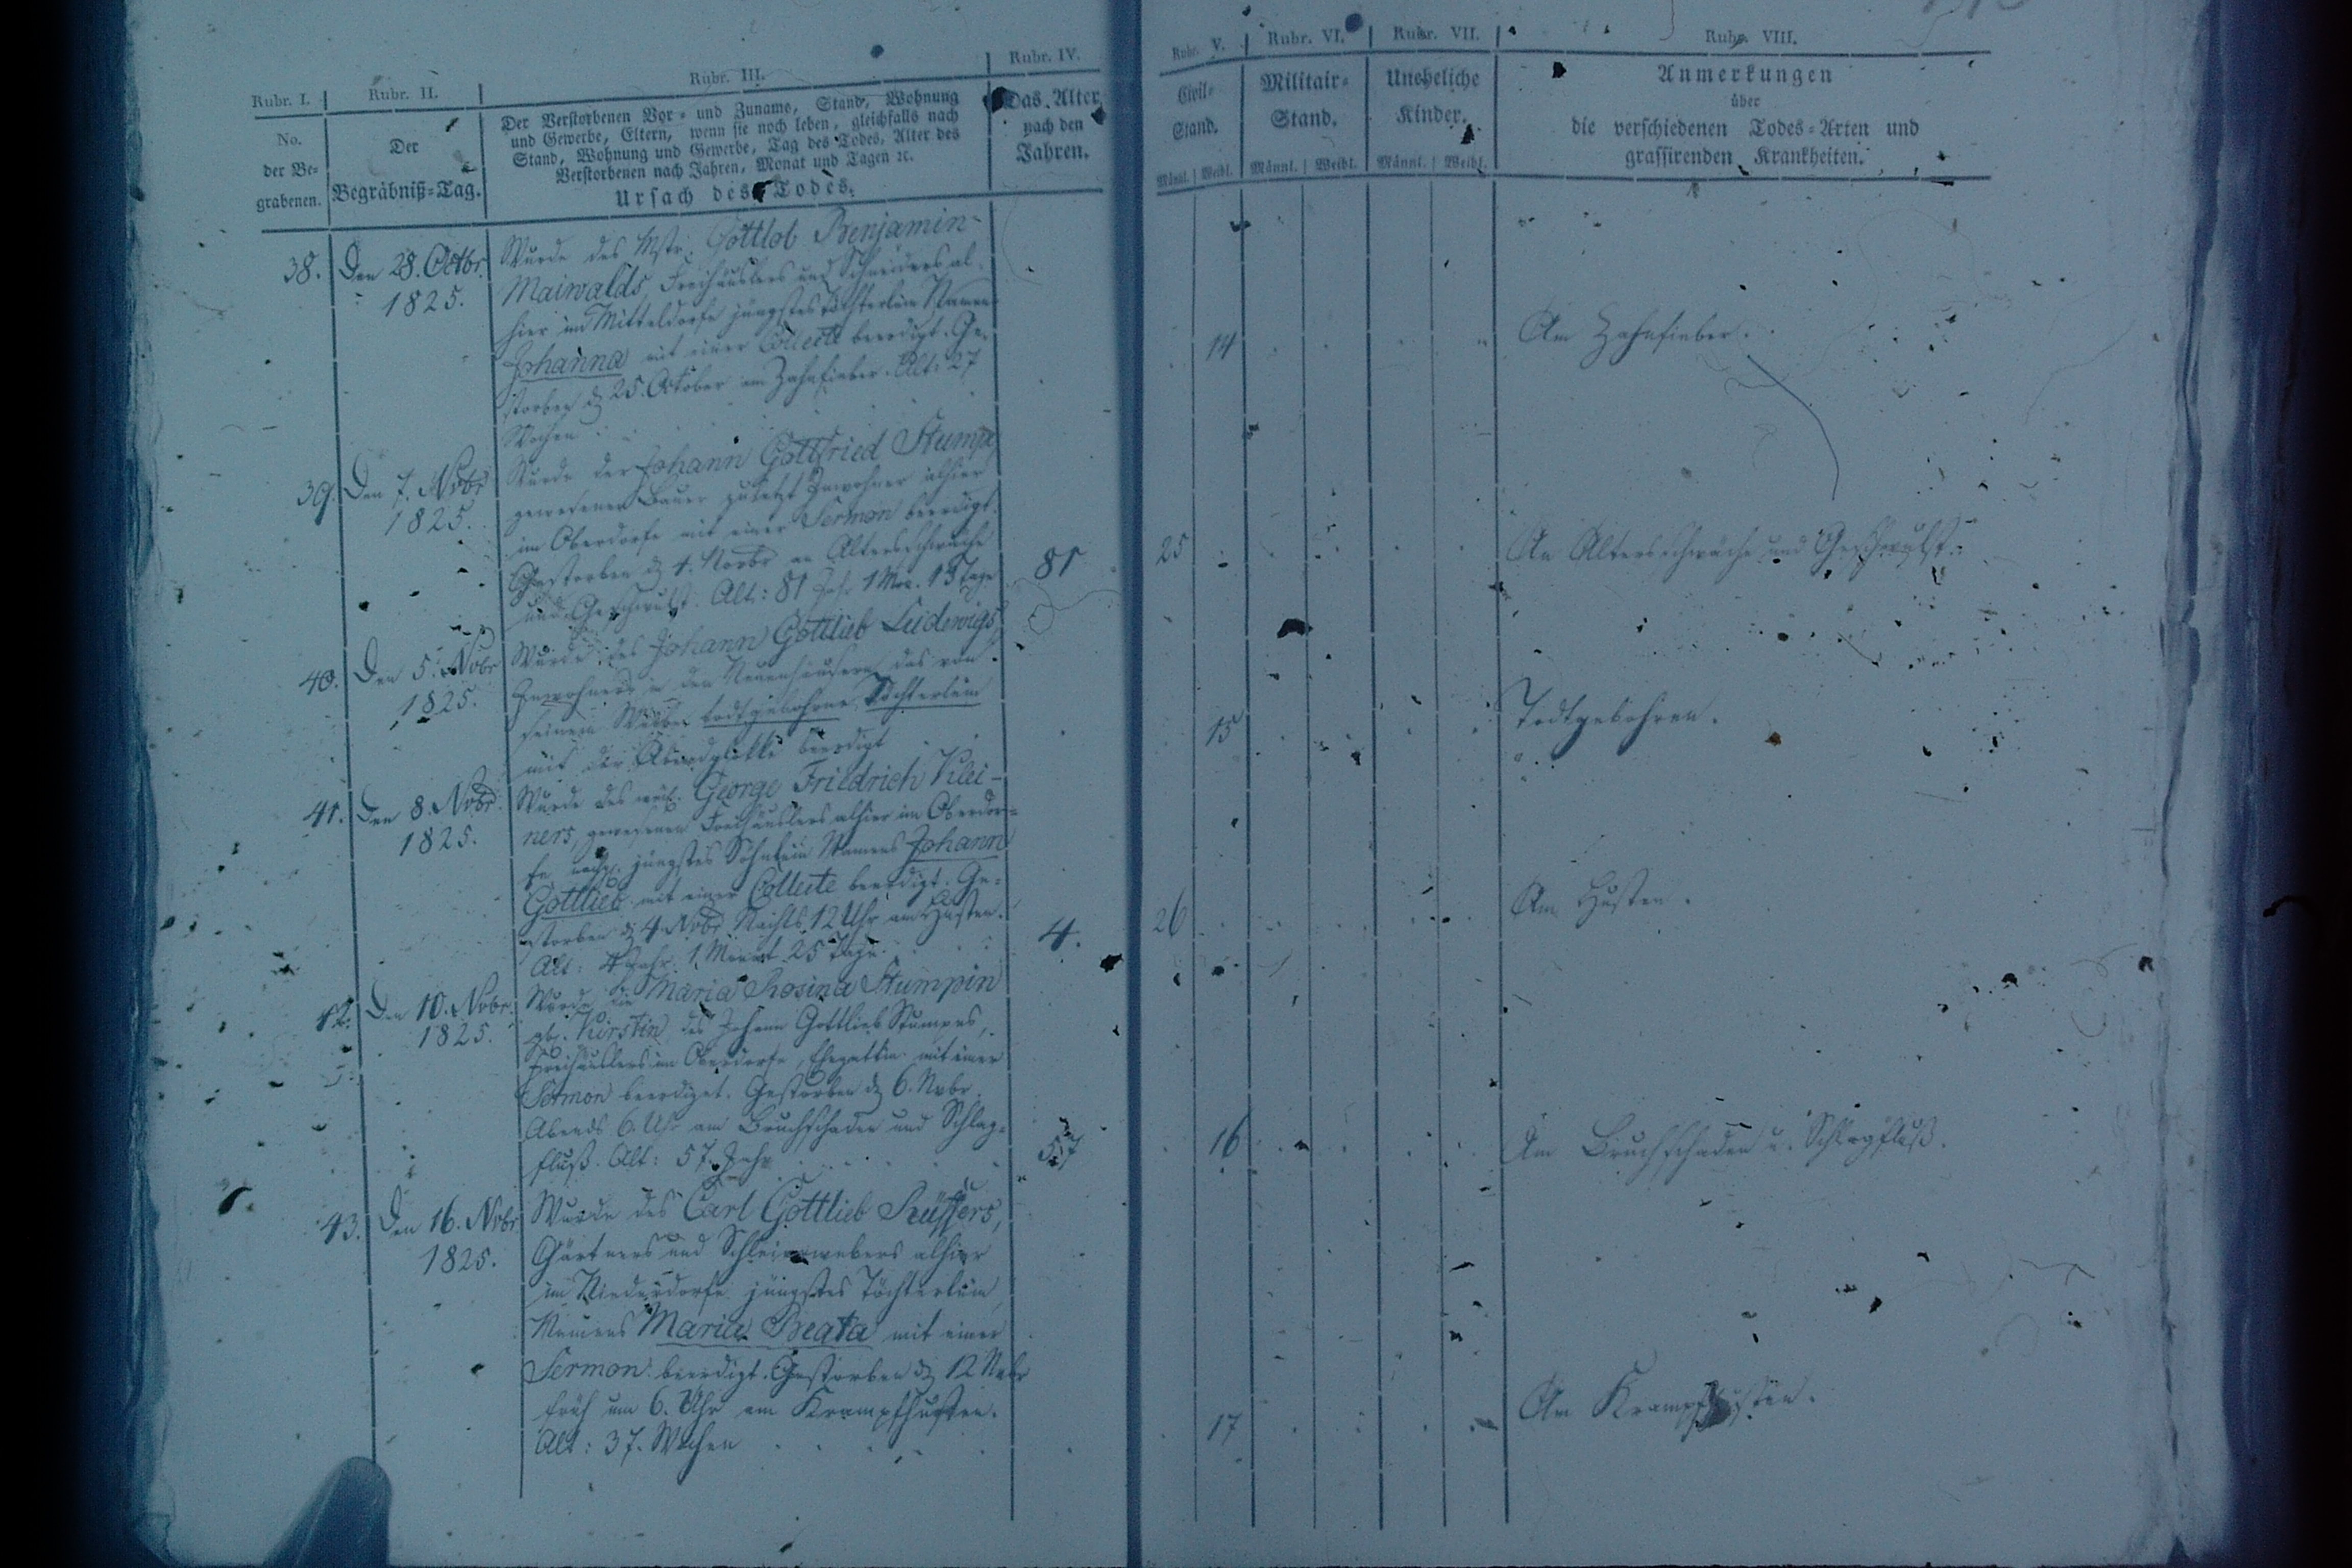 Rubr. I.
Rubr. II.
Rubr. III.
Rubr. IV.
No.
der Be-
grabenen.
Der
Begräbniß-Tag.
Der Verstorbenen Vor- und Zuname, Stand, Wohnung
und Gewerbe, Eltern, wenn sie noch leben, gleichfalls nach
Stand, Wohnung und Gewerbe, Tag des Todes, Alter des
Verstorbenen nach Jahren, Monat und Tagen ꝛc.
Ursach des Todes.
Das Alter
nach den
Jahren.
38. Den 28. Octbr.
1825.
Wurde des Mstr. Gottlob Benjamin
Maiwalds, Freihäuslers und Schneiders al-
hier im Mitteldorfe jüngstes Töchterlein Namens
Johanna mit einer Collecte beerdigt. Ge-
storben d 25. October am Zahnfieber. Alt: 27
Wochen
39. Den 7. Novbr
1825.
Wurde der Johann Gottfried Stumpe
gewesener Bauer zuletzt Inwohner alhier
im Oberdorfe mit einer Sermon beerdigt.
Gestorben d 4. Novbr an Altersschwäche
und Geschwulst. Alt: 81 Jahr 1 Mon. 15 Tage
81
40. Den 5. Nobr
1825.
Wurde des Johann Gottlieb Ludewigs,
Inwohners in den Neuenhäusern, das von
seinem Weibe todtgebohrne Töchterlein
mit der Abendglocke beerdigt
41. Den 8. Nobr
1825.
Wurde des weil. George Friedrich Klei-
ners, gewesenen Freihäuslers alhier im Oberdor-
fe jüngstes Söhnlein Namens Johann
Gottlieb mit einer Collecte beerdigt. Ge-
storben d 4 Nobr Nachts 12 Uhr am Husten.
Alt: 4 Jahr 1 Monat 25 Tage.
4.
42. Den 10. Nobr.
1825.
Wurde die Maria Rosina Stumpin
gb. Kirstin, des Johann Gottlieb Stumpes,
Freihäuslers im Oberdorfe, Ehegattin mit einer
Sermon beerdiget. Gestorben d 6. Nvbr.
Abends 6. Uhr am Bruchschaden und Schlag-
fluß. Alt: 57. Jahr
57
43. Den 16. Nvbr
1825.
Wurde des Carl Gottlieb
Gärtners und Schleierwebers alhier
im Niederdorfe jüngstes Töchterlein,
Namens Maria Beata mit einer
Sermon beerdigt. Gestorben d 12 Nvbr
früh um 6. Uhr am Krampfhusten.
Alt: 37. Wochen
Rubr. V.
Rubr. VI.
Rubr. VII.
Rubr. VIII.
Civil-
Stand.
Militair-
Stand.
Uneheliche
Kinder.
Anmerkungen
über
die verschiedenen Todes-Arten und
grassirenden Krankheiten.
Männl. Weibl. Männl. Weibl. Männl. Weibl.
14 Am Zahnfieber.
25 An Altersschwäche und Geschwulst.
15 Todtgebohren.
26 Am Husten.
16 Am Bruchschaden u. Schlagfluß.
17 Am Krampfhusten.